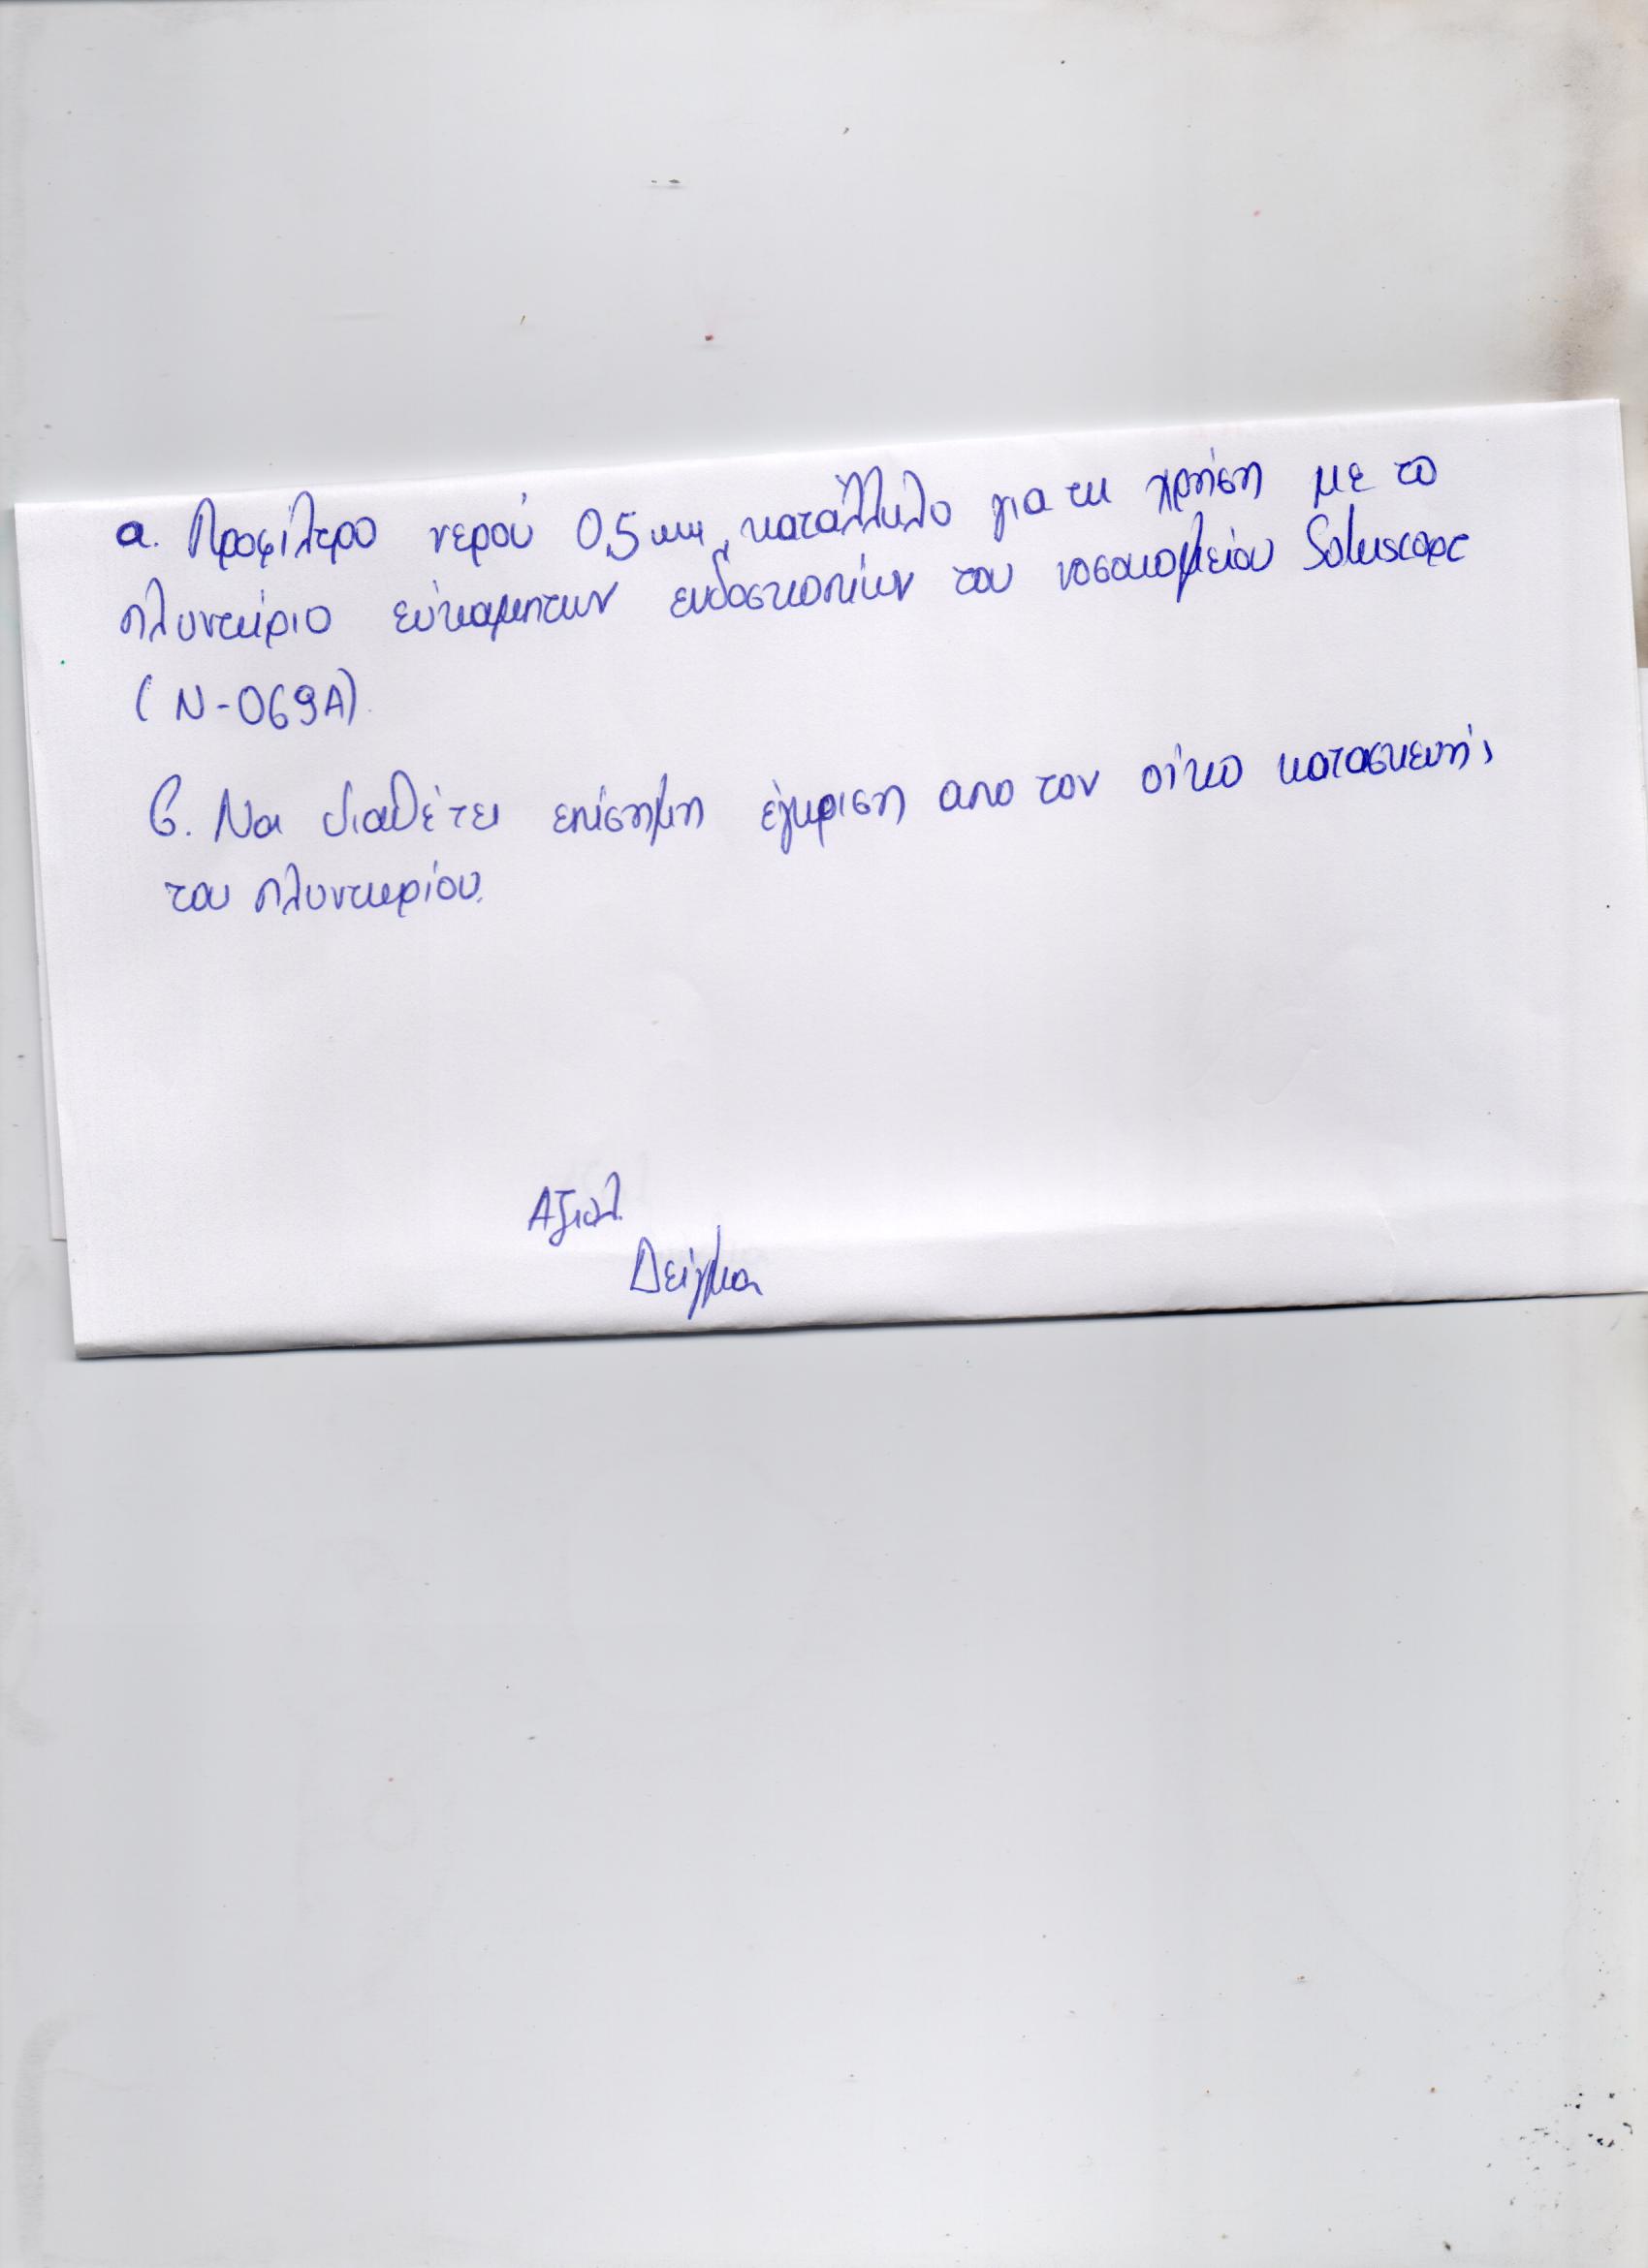 α. Προφίλτρο νερού 0,5 μm, κατάλληλο για τη χρήση με το
πλυντήριο εύκαμπτων ενδοσκοπίων του νοσοκομείου Soluscope
(N-069A).
β. Να διαθέτει επίσημη έγκριση απο τον οίκο κατασκευής
του πλυντηρίου.
Αξιολ.
Δείγμα